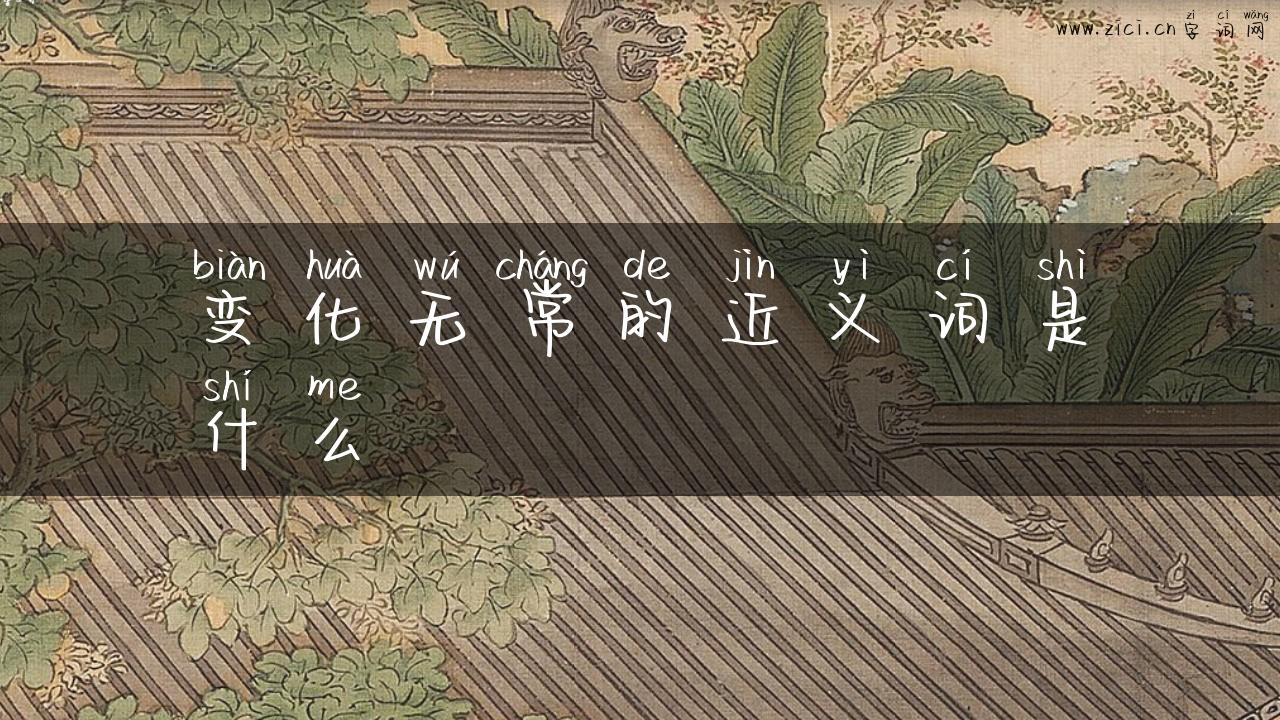 zì cí wǎng
www.zici.cn 字词网
biàn huà wú cháng de jìn yì cí shì
变化无常的近义词是
shí me
什么